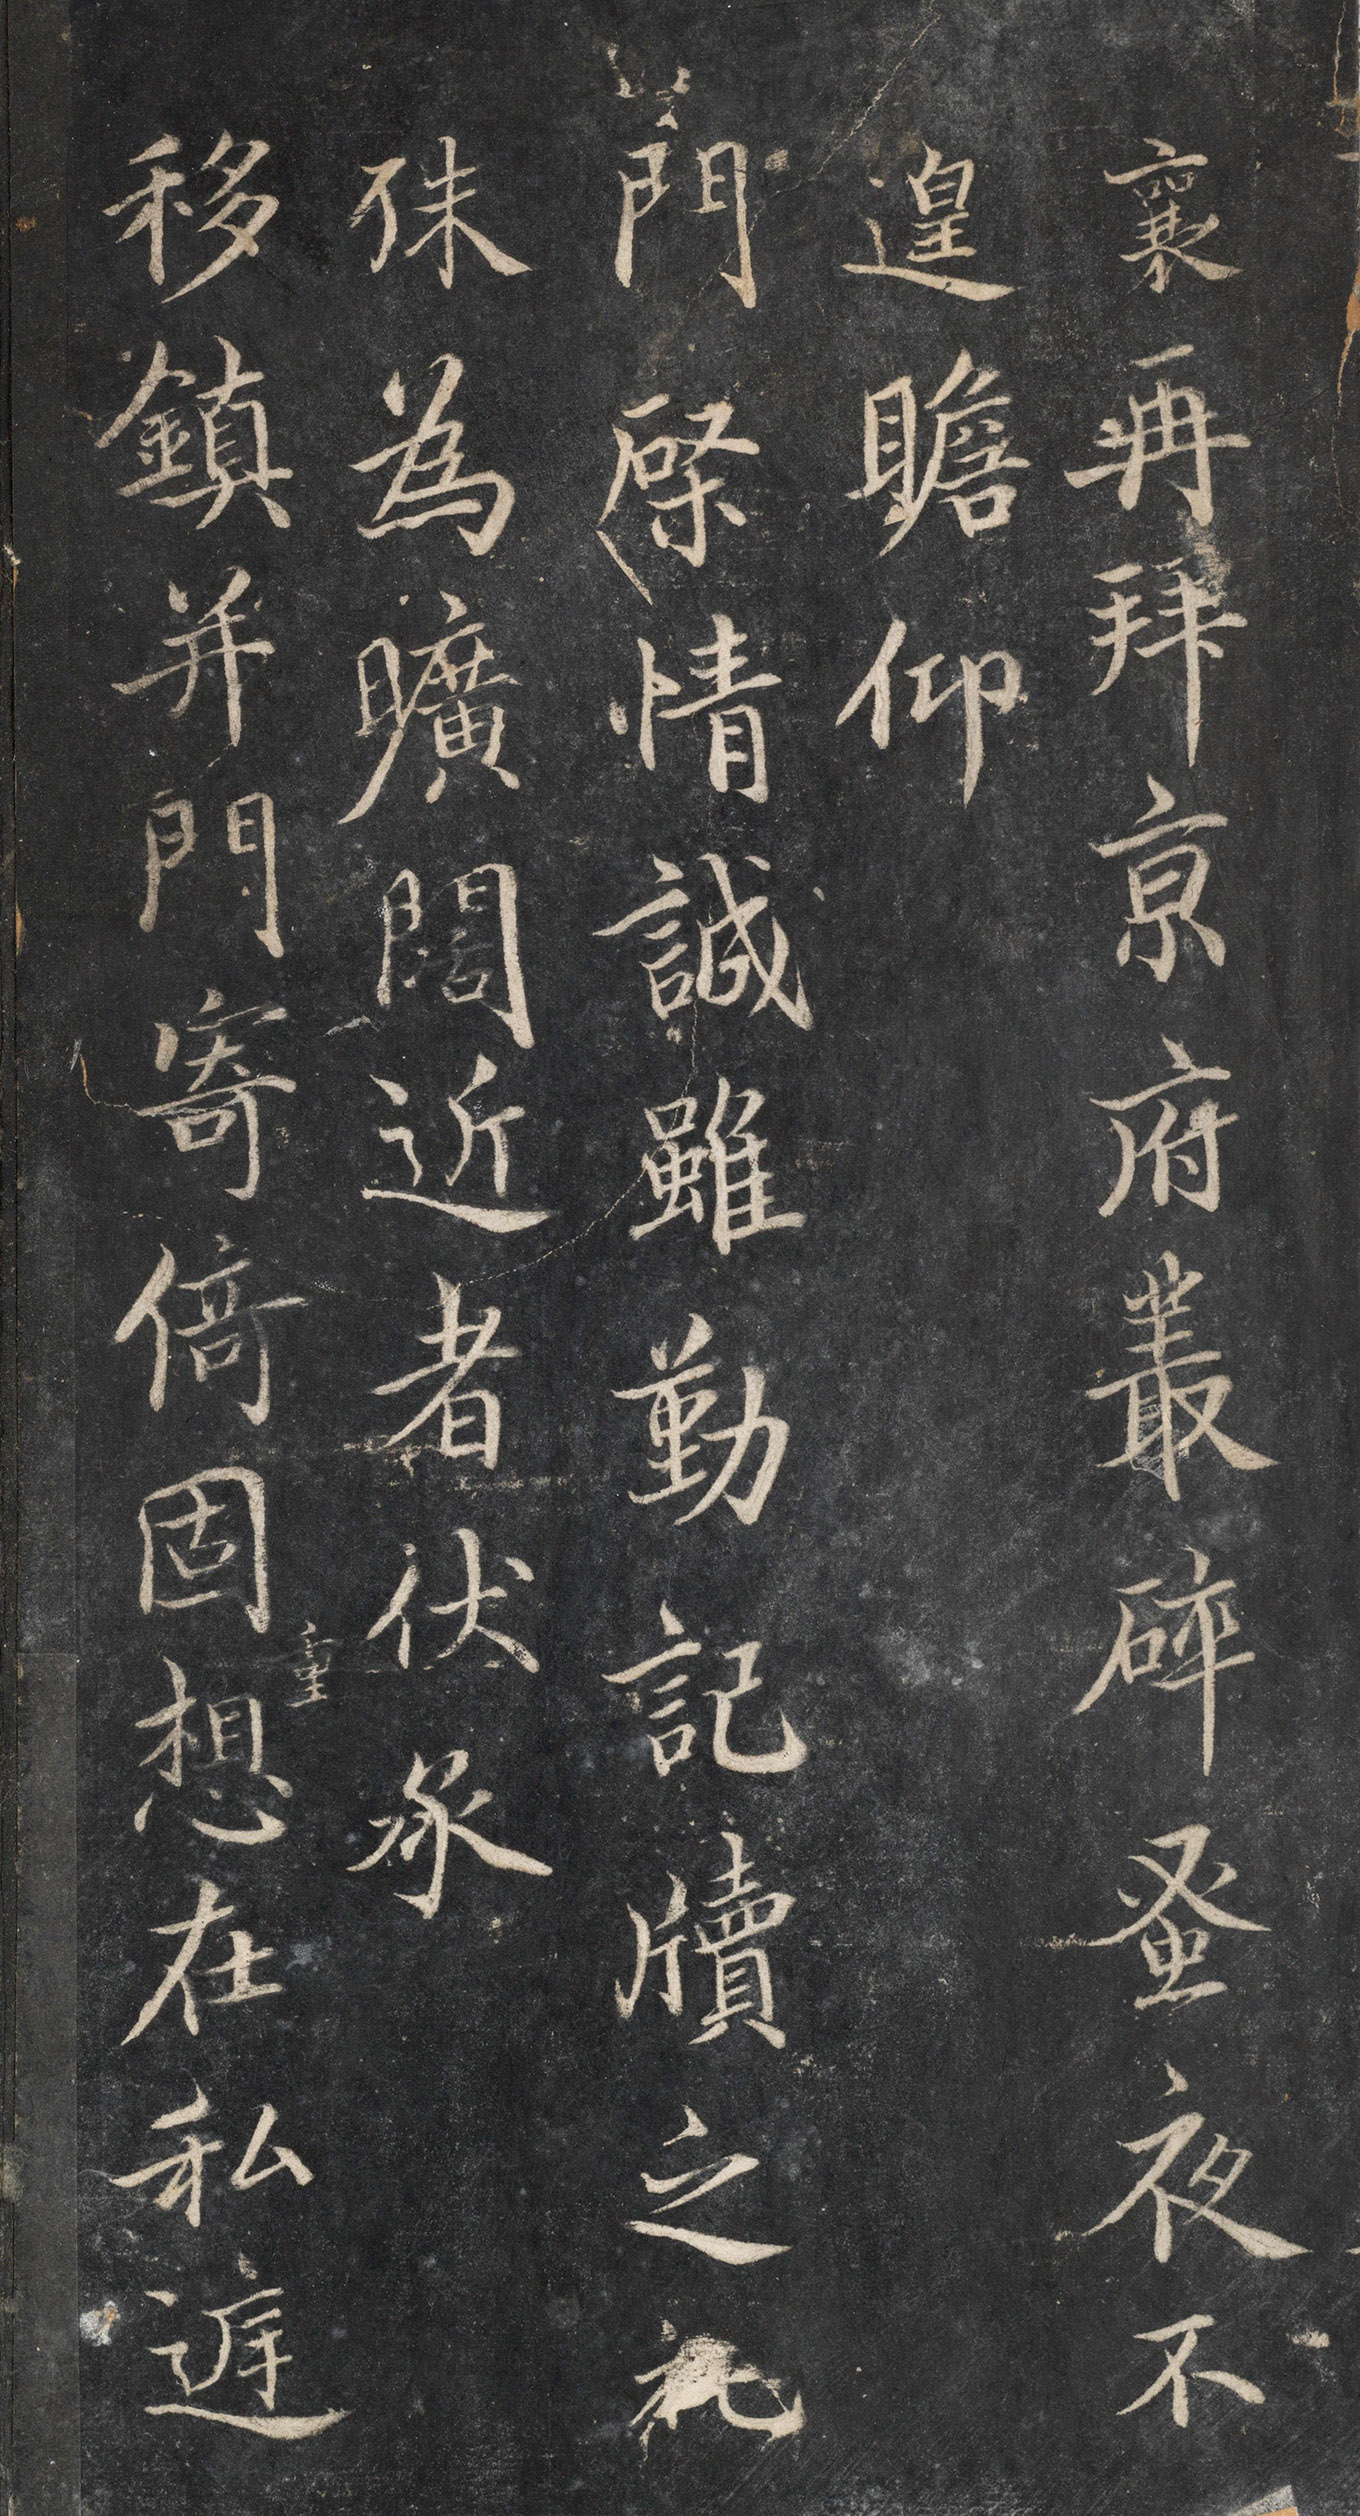 襄再拜京府叢碎蚤夜不
遑瞻仰
門情誠雖勤記牘之礼
殊為曠闊近者伏承
移鎮并門寄倚固重想在私遅